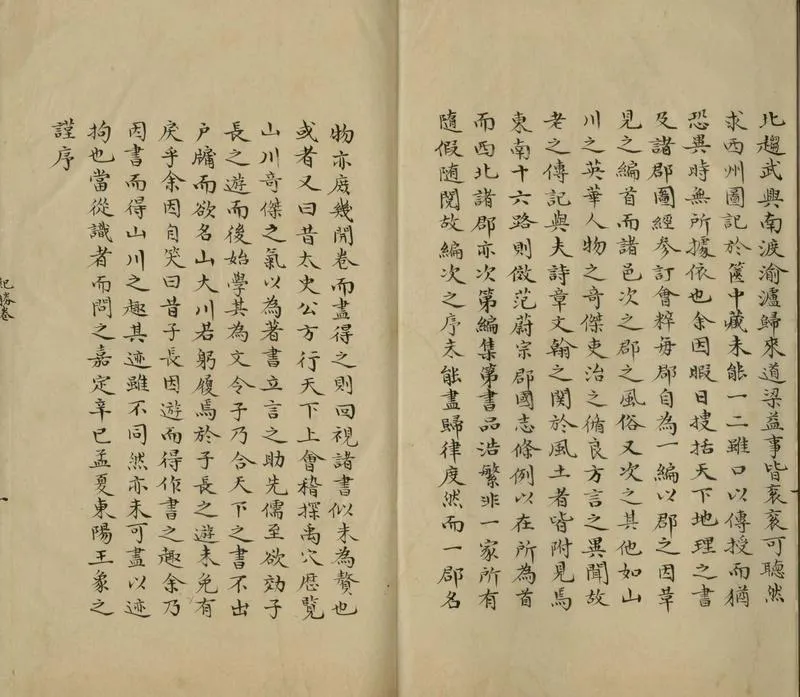 北趨武興南渡渝瀘歸來道梁益事皆袞袞可聽然
求西州圖記於篋中藏未能一二雖口以傳授而猶
恐異時無所據依也余因暇日搜括天下地理之書
及諸郡圖經參訂會粹每郡自為一編以郡之因革
見之編首而諸邑次之郡之風俗又次之其他如山
川之英華人物之奇傑吏治之脩良方言之異聞故
老之傳記與夫詩章文翰之関於風土者皆附見焉
東南十六路則倣范蔚宗郡國志條例以在所為首
而西北諸郡亦次第編集第書品浩繁非一家所有
隨假随閱故編次之序未能盡歸律度然而一郡名
物亦庶幾開卷而盡得之則回視諸書似未為贅也
或者又曰昔太史公方行天下上會稽探禹穴歷覽
山川竒傑之氣以為著書立言之助先儒至欲効子
長之遊而後始學其為文今子乃合天下之書不出
户牖而欲名山大川若躬履焉於子長之遊未免有
戾乎余因自笑曰昔子長因遊而得作書之趣余乃
因書而得山川之趣其迹雖不同然亦未可盡以迹
拘也當從識者而問之嘉定辛巳孟夏東陽王象之
謹序
紀勝卷